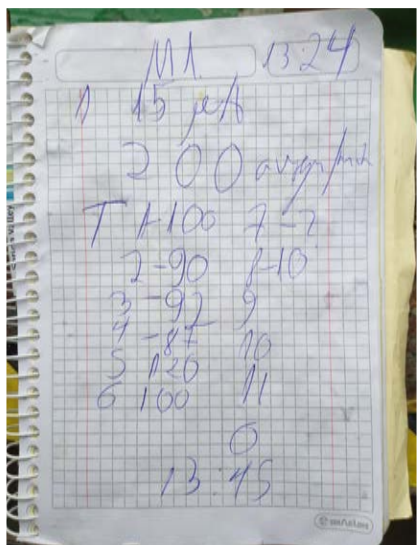 M1. 13:24
1 15 μA
200
T 1-100 7-2
2-90 8-10
3-92 9
4-87 10
5 120 11
6 100
0
13:45